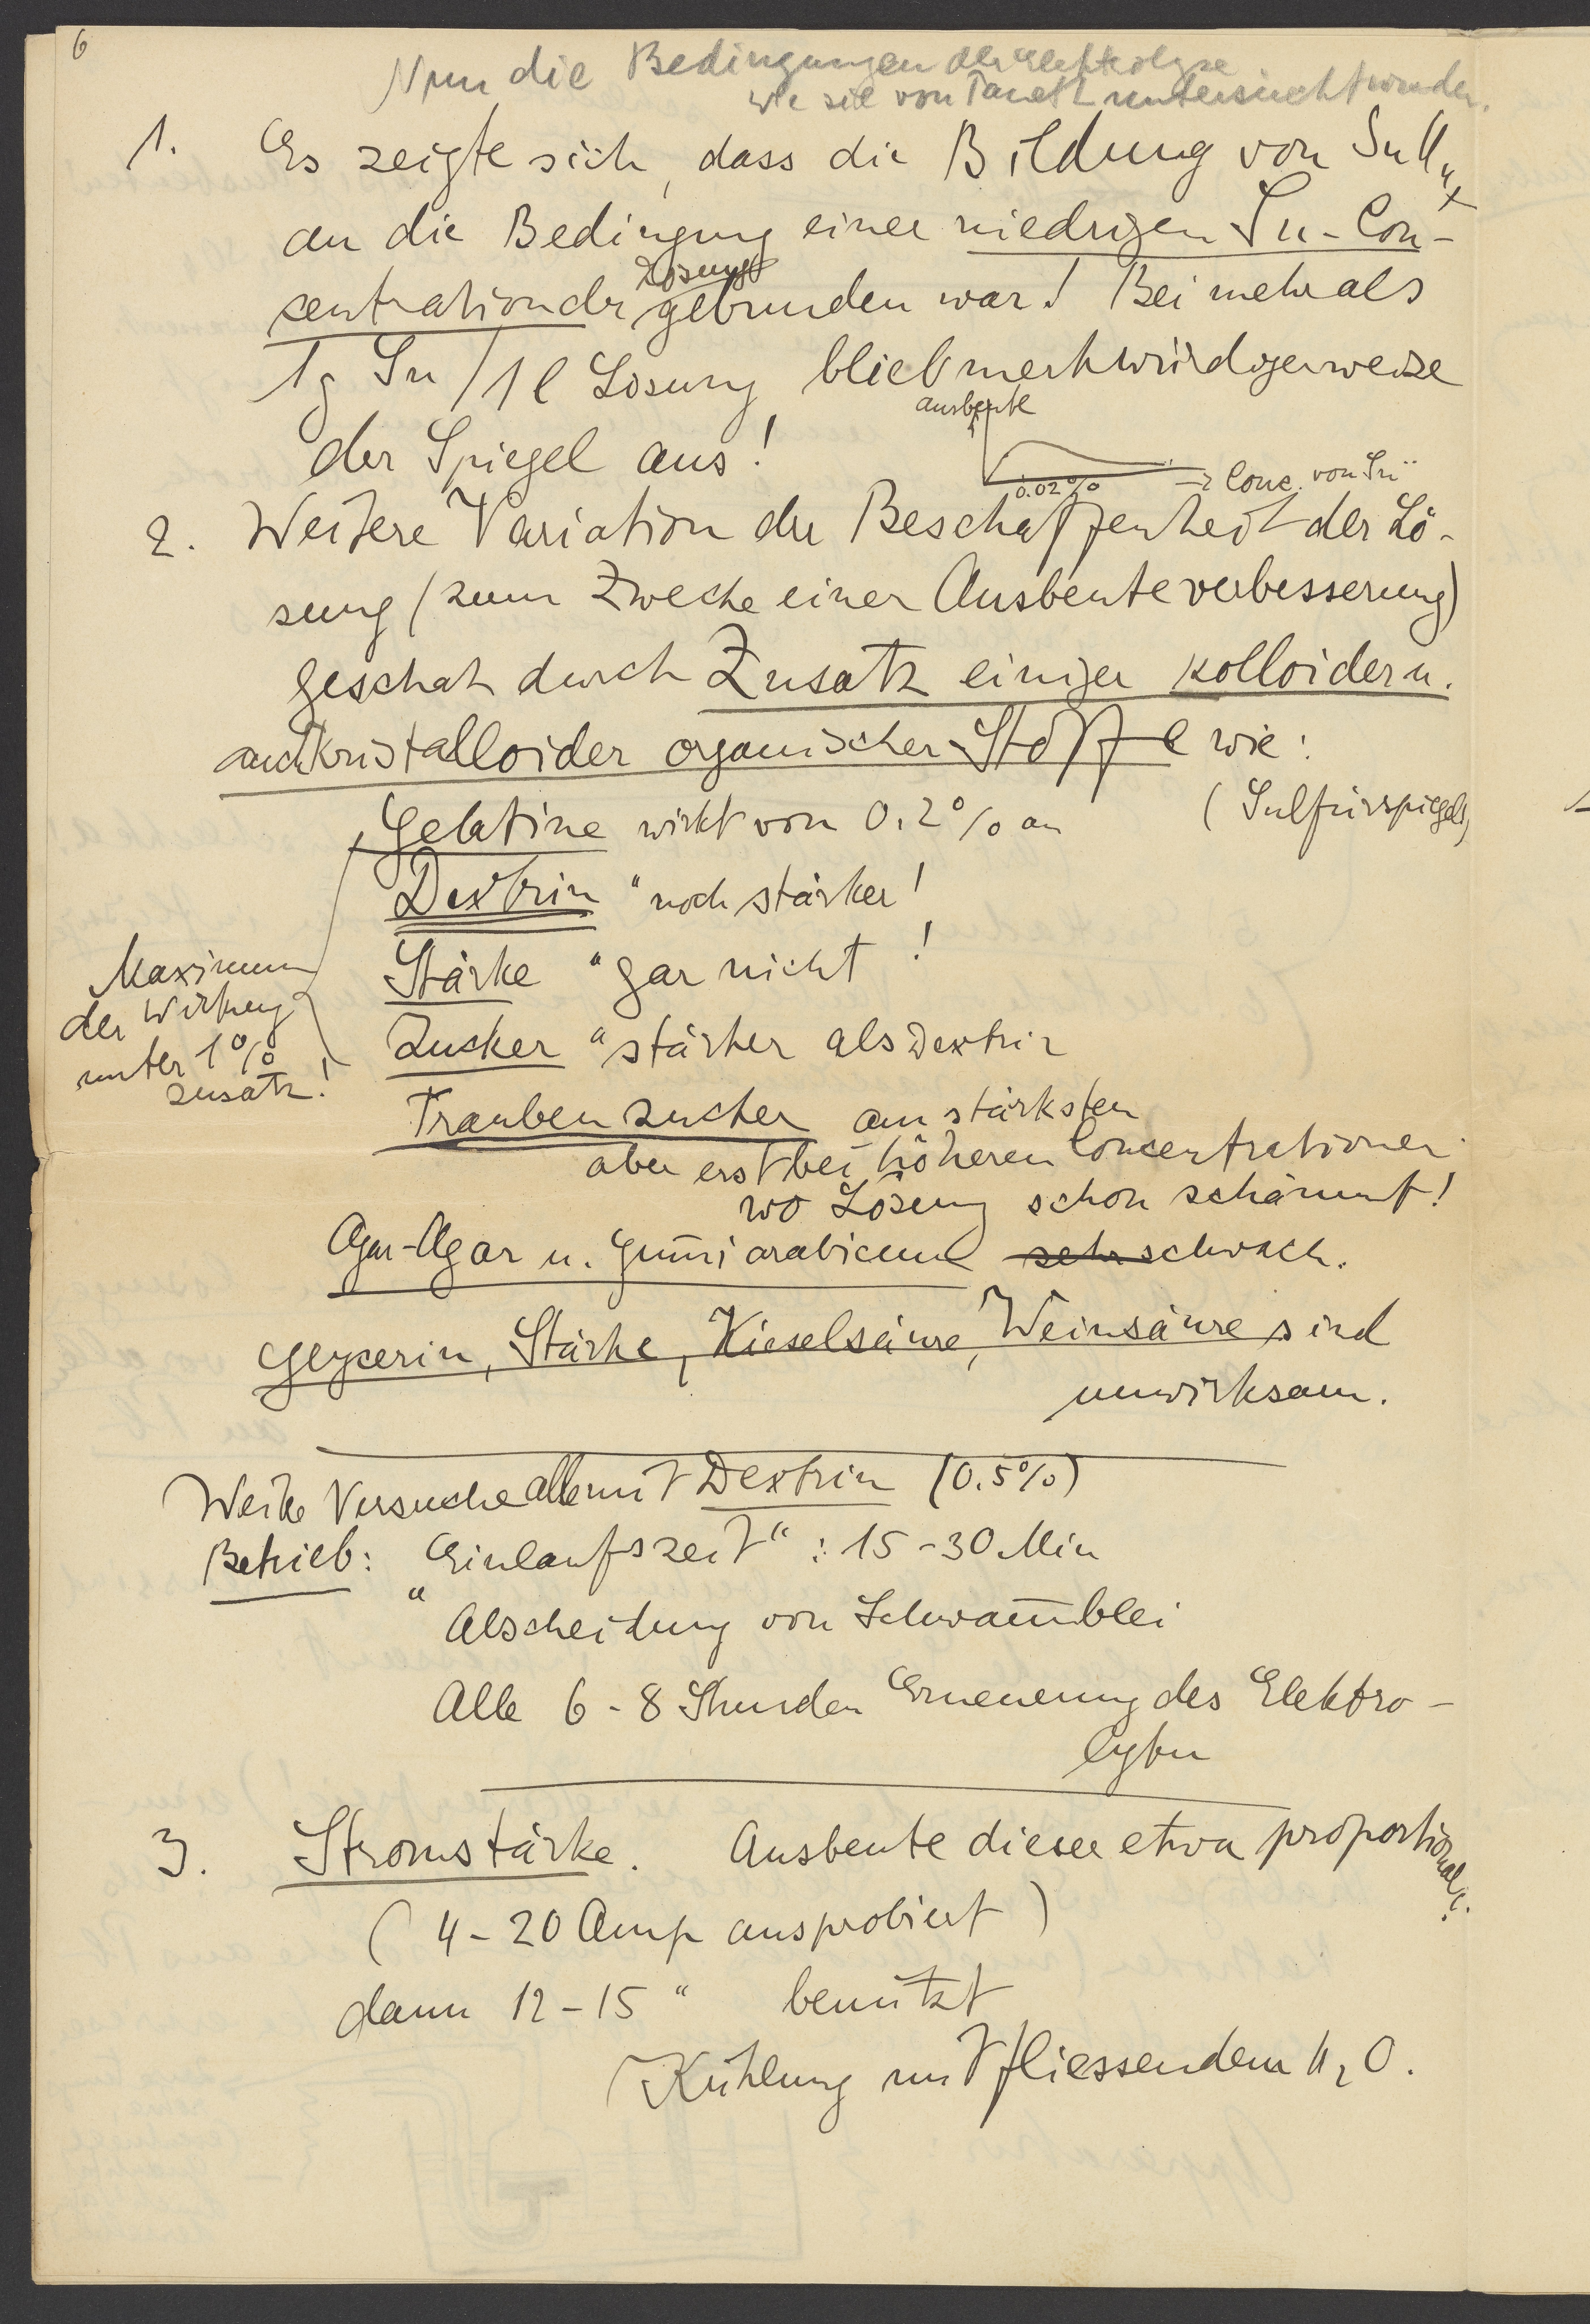 6
Nun die Bedingungen der Elektrolyse
wie sie von Paneth untersucht wurden.
1. Es zeigte sich, dass die Bildung von SnH4
an die Bedingung einer niedrigen Sn-Con-
zentration der Lösung gebunden war! Bei mehr als
1g Sn/1l Lösung blieb merkwürdigerweise
der Spiegel aus!
Ausbeute
0.02%
→ Conc. von Sn¨
2. Weitere Variation der Beschaffenheit der Lö-
sung (zum Zwecke einer Ausbeuteverbesserung)
geschah durch Zusatz einiger kolloider u.
auch kristalloider organischer Stoffe wie:
Gelatine wirkt von 0.2% an
(Sulfürspiegel)
Dextrin " noch stärker!
Stärke " gar nicht!
Zucker " stärker als Dextrin
Maximum
der Wirkung
unter 1%
Zusatz!
Traubenzucker am stärksten
aber erst bei höheren Concentrationen
wo Lösung schon schäumt!
Agar-Agar u. Gum̅i arabicum sehr schwach.
Glycerin, Stärke, Kieselsäure, Weinsäure sind
unwirksam.
Weite Versuche alle mit Dextrin (0.5%)
Betrieb: "Einlaufszeit" : 15-30 Min
Abscheidung von Schwam̅blei
Alle 6-8 Stunden Erneuerung des Elektro-
lyten
3. Stromstärke. Ausbeute dieser etwa proportional.
(4-20 Amp ausprobiert)
dann 12-15 " benützt
Kühlung mit fliessendem H2O.